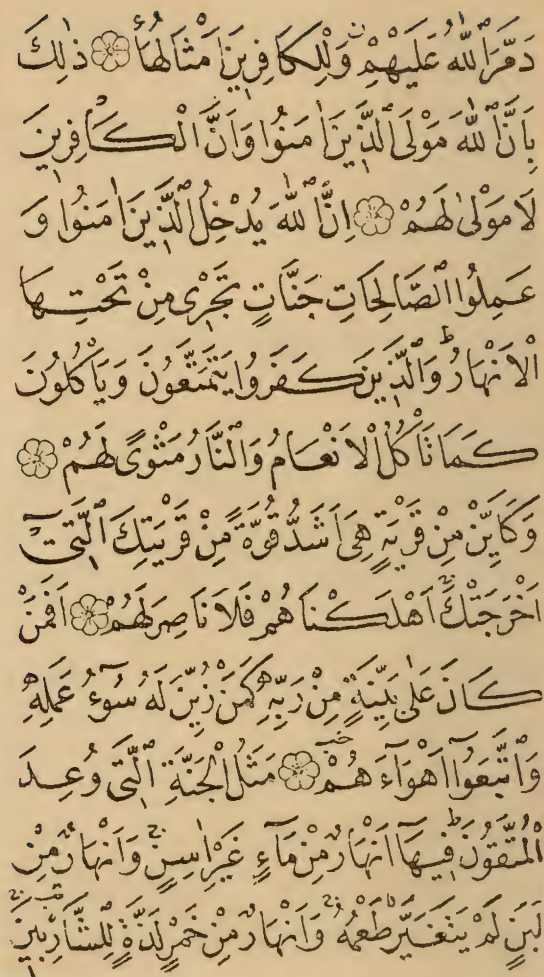 دَمَّرَ ٱللّٰهُ عَلَيْهِمْ وَلِلْكَافِرِينَ اَمْثَالُهَا ۞ ذٰلِكَ
بِاَنَّ ٱللّٰهَ مَوْلَى ٱلَّذِينَ اٰمَنُوا وَاَنَّ الْكَافِرِينَ
لَا مَوْلٰى لَهُمْ ۞ اِنَّ ٱللّٰهَ يُدْخِلُ ٱلَّذِينَ اٰمَنُوا وَ
عَمِلُوا ٱلصَّالِحَاتِ جَنَّاتٍ تَجْرِى مِنْ تَحْتِهَا
الْاَنْهَارُ ۗ وَٱلَّذِينَ كَفَرُوا يَتَمَتَّعُونَ وَيَاْكُلُونَ
كَمَا تَاْكُلُ الْاَنْعَامُ وَٱلنَّارُ مَثْوًى لَهُمْ ۞
وَكَاَيِّنْ مِنْ قَرْيَةٍ هِىَ اَشَدُّ قُوَّةً مِنْ قَرْيَتِكَ ٱلَّتِىٓ
اَخْرَجَتْكَ اَهْلَكْنَاهُمْ فَلَا نَاصِرَ لَهُمْ ۞ اَفَمَنْ
كَانَ عَلٰى بَيِّنَةٍ مِنْ رَبِّهٖ كَمَنْ زُيِّنَ لَهُ سُوٓءُ عَمَلِهٖ
وَٱتَّبَعُوٓا اَهْوَآءَهُمْ ۞ مَثَلُ الْجَنَّةِ ٱلَّتِى وُعِدَ
الْمُتَّقُونَ ۗ فِيهَآ اَنْهَارٌ مِنْ مَآءٍ غَيْرِ اٰسِنٍ وَاَنْهَارٌ مِنْ
لَبَنٍ لَمْ يَتَغَيَّرْ طَعْمُهُ وَاَنْهَارٌ مِنْ خَمْرٍ لَذَّةٍ لِلشَّارِبِينَ